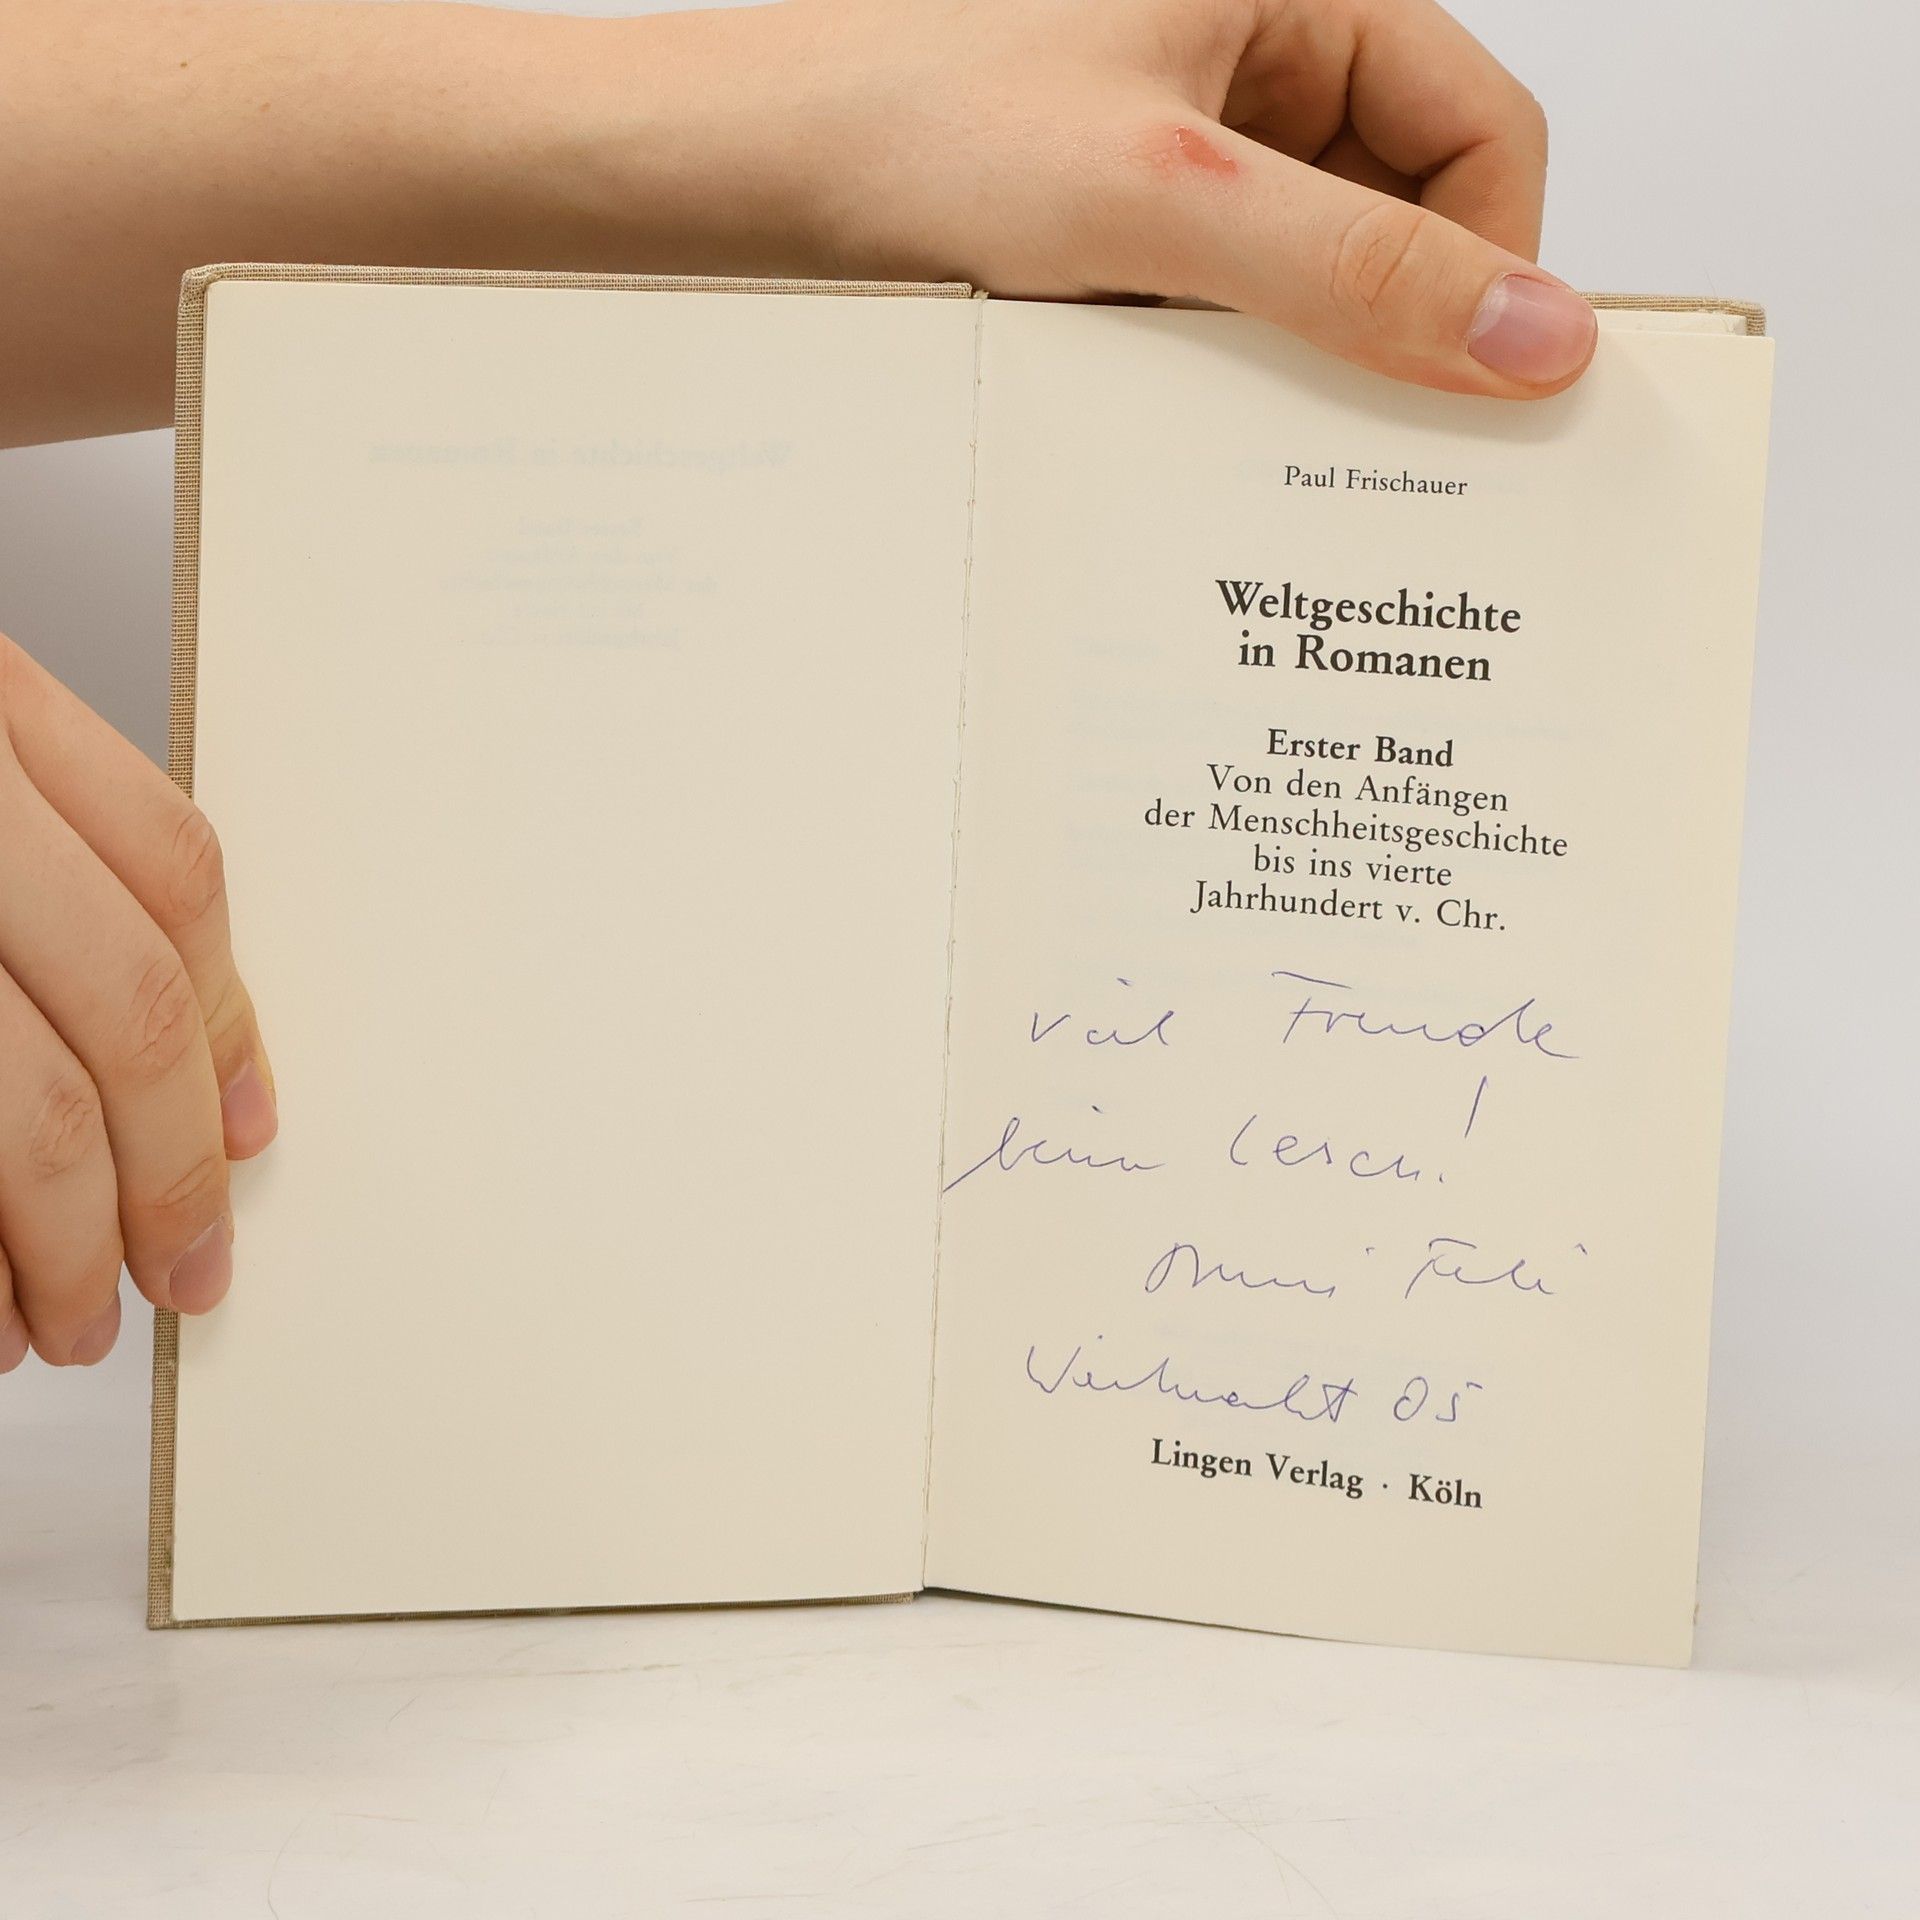 Paul Frischauer
Weltgeschichte
in Romanen
Erster Band
Von den Anfängen
der Menschheitsgeschichte
bis ins vierte
Jahrhundert v. Chr.
Viel Freude
beim Lesen!
Weihnacht 05
Lingen Verlag · Köln